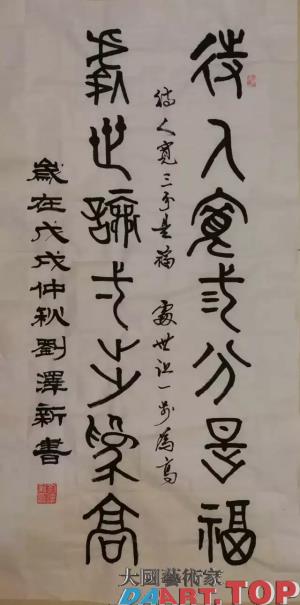 待人寬弎分是福
待人寬三分是福 處世让一步爲高
處世讓弌步爲高
歲在戊戌仲秋劉澤新書
大國藝術家
DAART.TOP